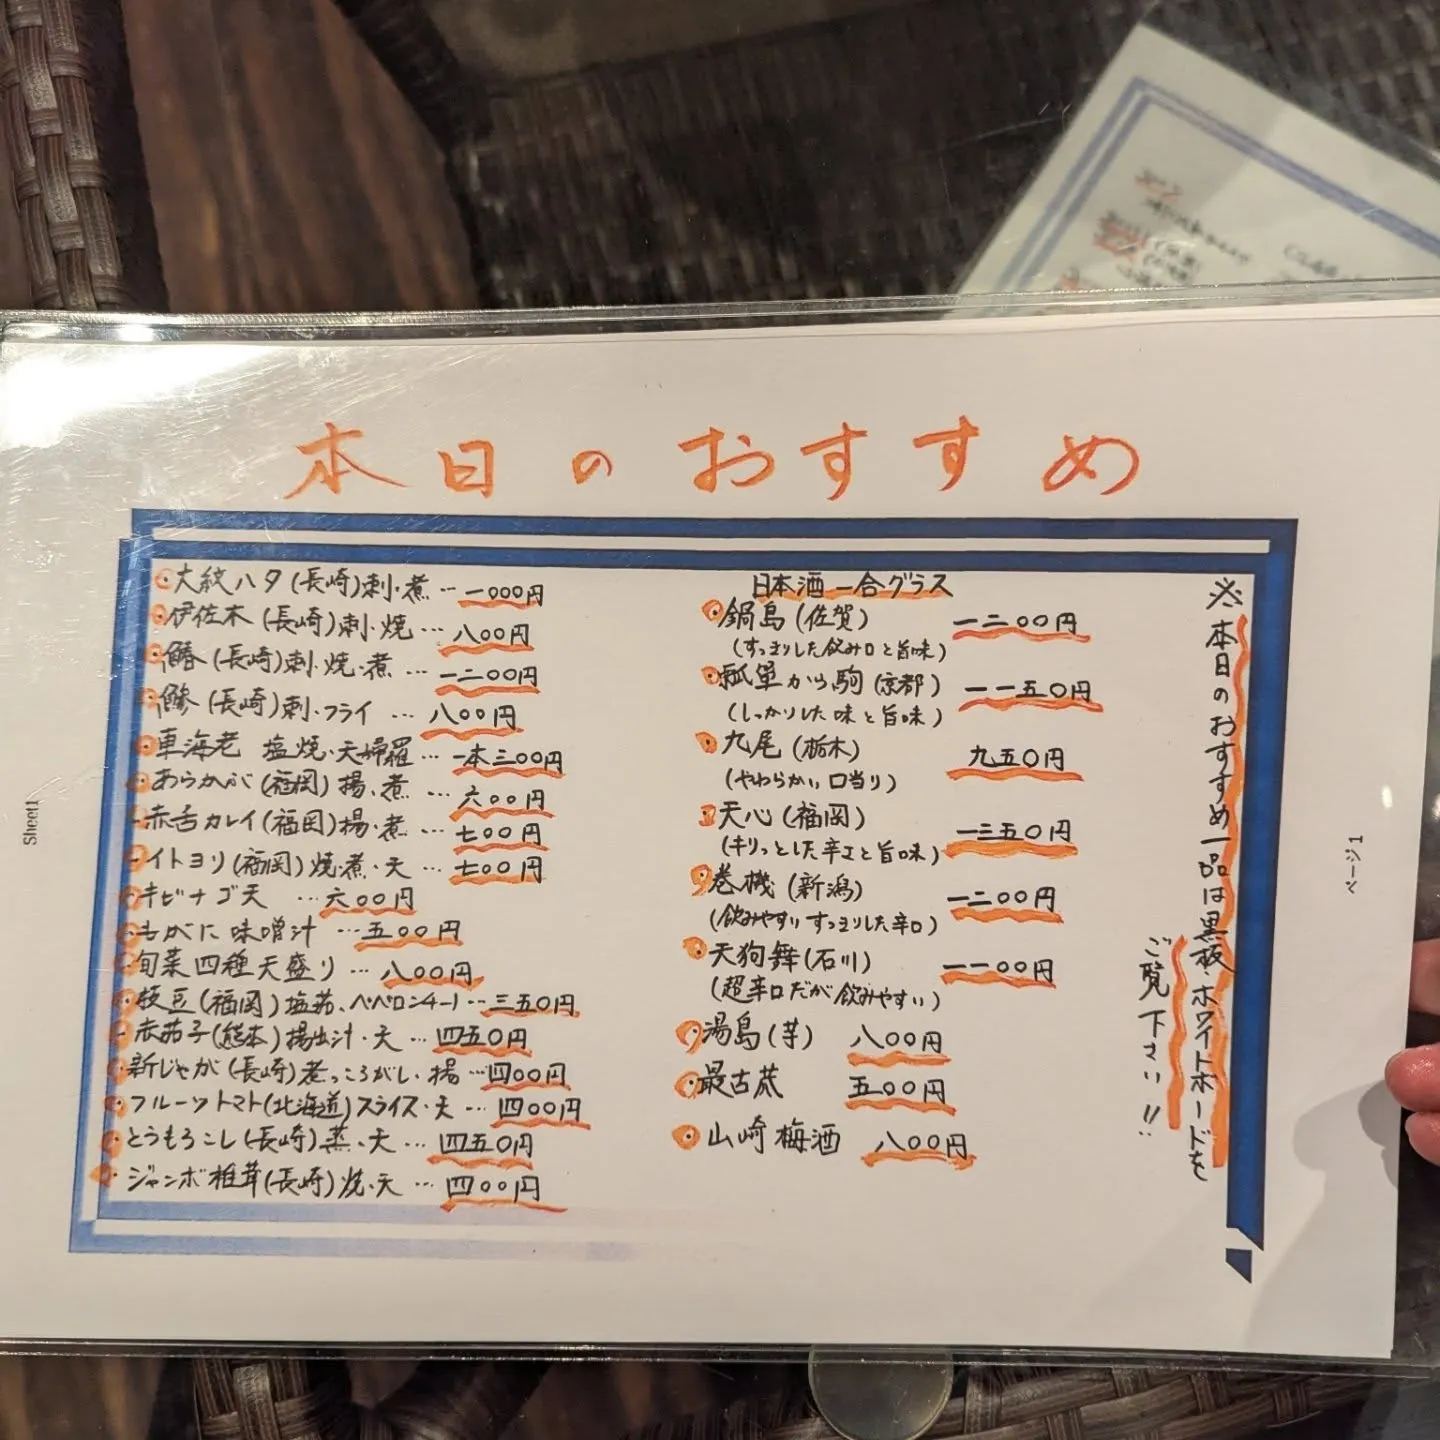 本日のおすすめ
大紋ハタ(長崎)刺・煮…一000円
伊佐木(長崎)刺・焼…八00円
鰆(長崎)刺・焼・煮…一二00円
鯵(長崎)刺・フライ…八00円
車海老 塩焼・天婦羅…一本三00円
あらかぶ(福岡)揚・煮…六00円
赤舌カレイ(福岡)揚・煮…七00円
イトヨリ(福岡)焼・煮・天…七00円
キビナゴ天…六00円
もがに味噌汁…五00円
旬菜四種天盛り…八00円
枝豆(福岡)塩茹、ペペロンチーノ…三五0円
赤茄子(熊本)揚出汁・天…四五0円
新じゃが(長崎)煮っころがし・揚…四00円
フルーツトマト(北海道)スライス・天…四00円
とうもろこし(長崎)蒸・天…四五0円
ジャンボ椎茸(長崎)焼・天…四00円
日本酒 一合グラス
鍋島(佐賀) 一二00円
(すっきりした飲み口と旨味)
瓢箪から駒(京都) 一一五0円
(しっかりした味と旨味)
九尾(栃木) 九五0円
(やわらかい口当り)
天心(福岡) 一三五0円
(キリっとした辛さと旨味)
巻機(新潟) 一二00円
(飲みやすいすっきりした辛口)
天狗舞(石川) 一一00円
(超辛口だが飲みやすい)
湯島(芋) 八00円
最古蔵 五00円
山崎梅酒 八00円
※本日のおすすめ一品は黒板・ホワイトボードを
ご覧下さい!!
Sheet1
ページ 1